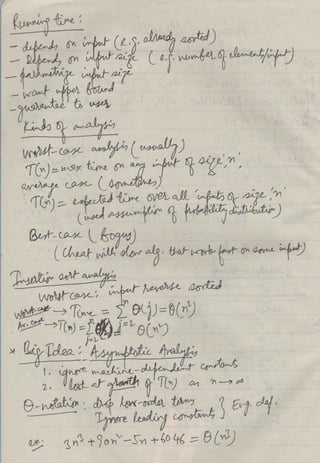 Running time:
- depends on input (e.g. already sorted)
- Depends on input size (e.g. number of elements/input)
- parametrize input size
- want upper bound
- guarantee to user
Kinds of analysis
worst-case analysis (usually)
T(n) = max time on any input of size 'n'
average case (sometimes)
T(n) = expected time over all inputs of size 'n'
(used assumption of probability distribution)
Best-case (bogus)
(cheat with slow alg. that works fast on some input)
Insertion sort analysis
worst case: input reverse sorted
worst-case → Time = Σ Θ(j) = Θ(n²)
Av. case → T(n) = Θ(n²)
* Big Idea: Asymptotic Analysis
1. ignore machine-dependent constants
2. look at growth of T(n) as n→∞
Θ-notation: drop low-order terms
Ignore leading constants } Eng. def.
ex: 3n³ + 90n² - 5n + 6046 = Θ(n³)